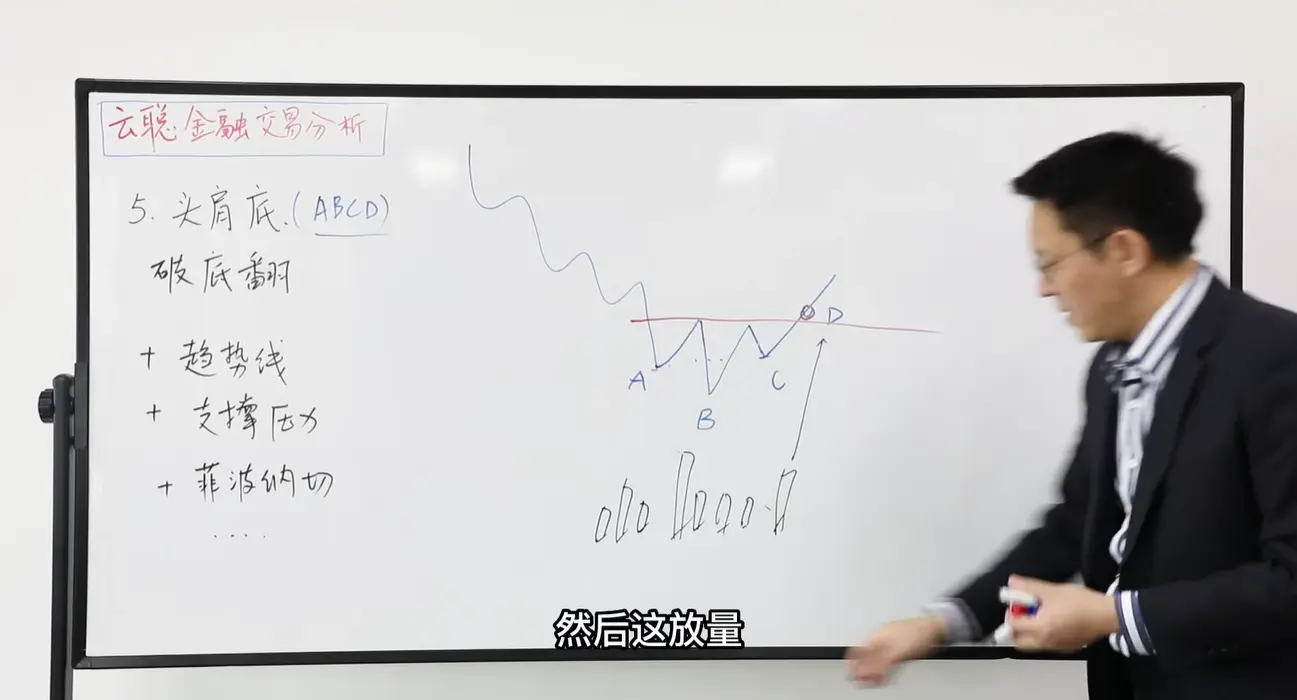 云聪金融交易分析
5. 头肩底.(ABCD)
破底翻
+ 趋势线
+ 支撑压力
+ 菲波纳切
....
D
A
C
B
然后这放量